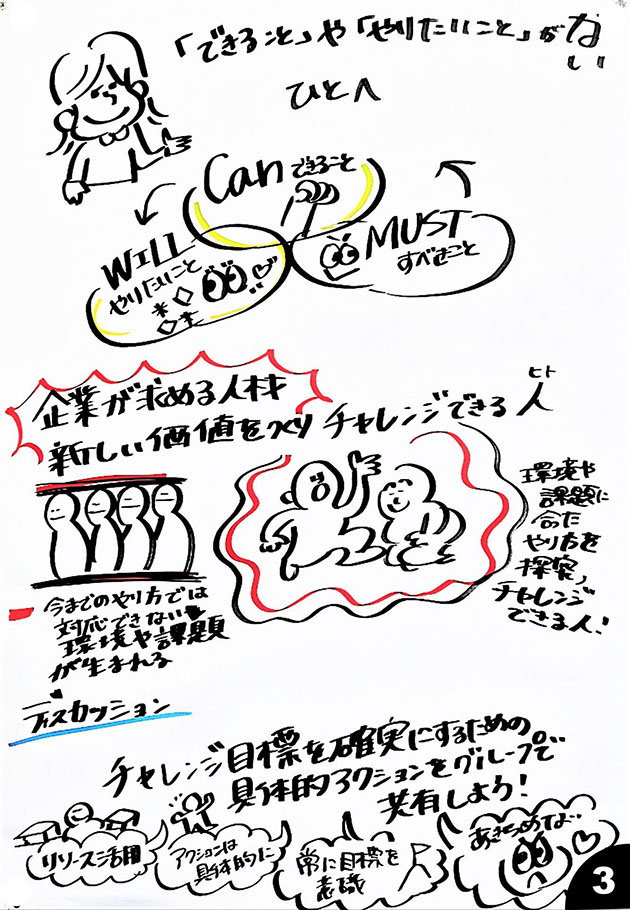 「できること」や「やりたいこと」がない
ひとへ
Can できること
WILL
やりたいこと
MUST
すべきこと
企業が求める人材
新しい価値をつくりチャレンジできる人
ヒト
今までのやり方では
対応できない
環境や課題
が生まれる
環境や
課題に
合った
やり方を
探索,
チャレンジ
できる人!
ディスカッション
チャレンジ目標を確実にするための
具体的アクションをグループで
共有しよう!
リソース活用
アクションは
具体的に
常に目標を
意識
あきらめな…
3